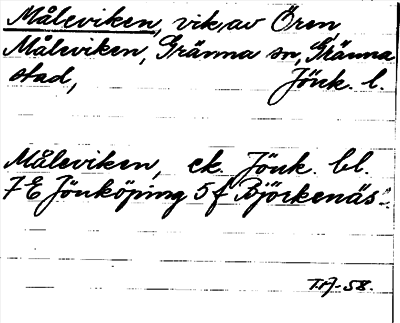 Måleviken, vik av Ören,
Måleviken, Gränna sn, Gränna
stad, Jönk. l.
Måleviken, ek. Jönk. bl.
7E Jönköping 5f Björkenäs.
-58.